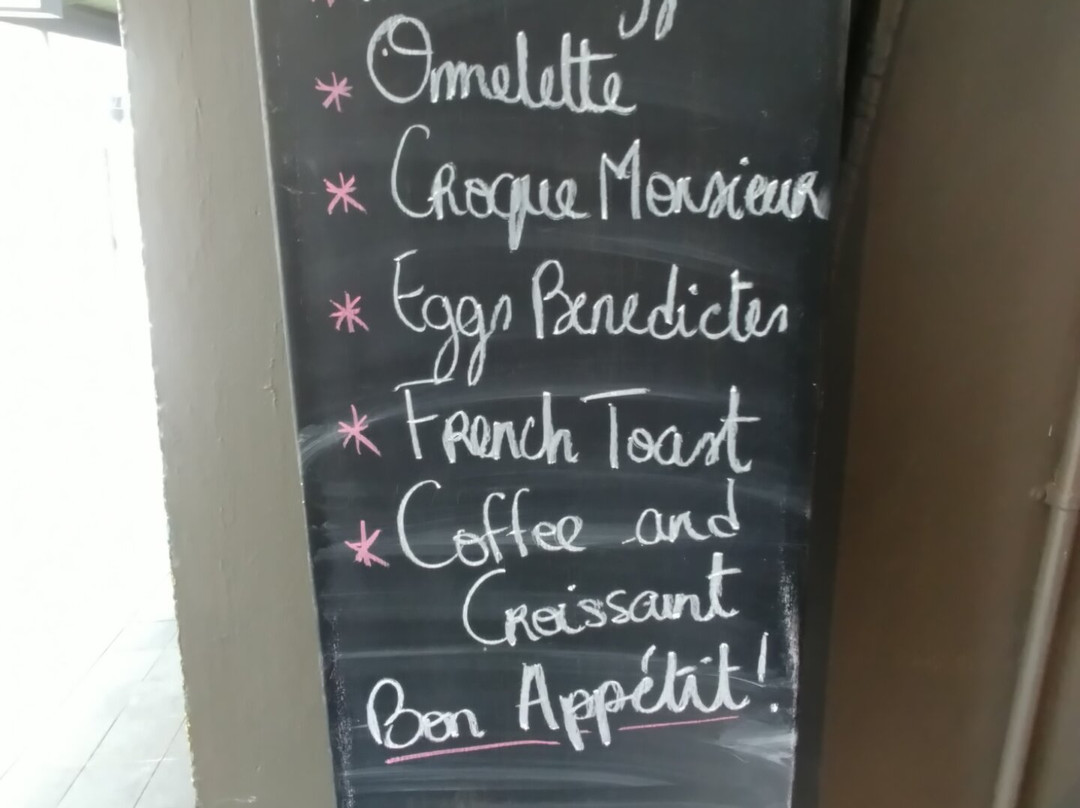 * Ommelette
* Croque Monsieur
* Eggs Benedictes
* French Toast
* Coffee and
Croissant
Bon Appétit!